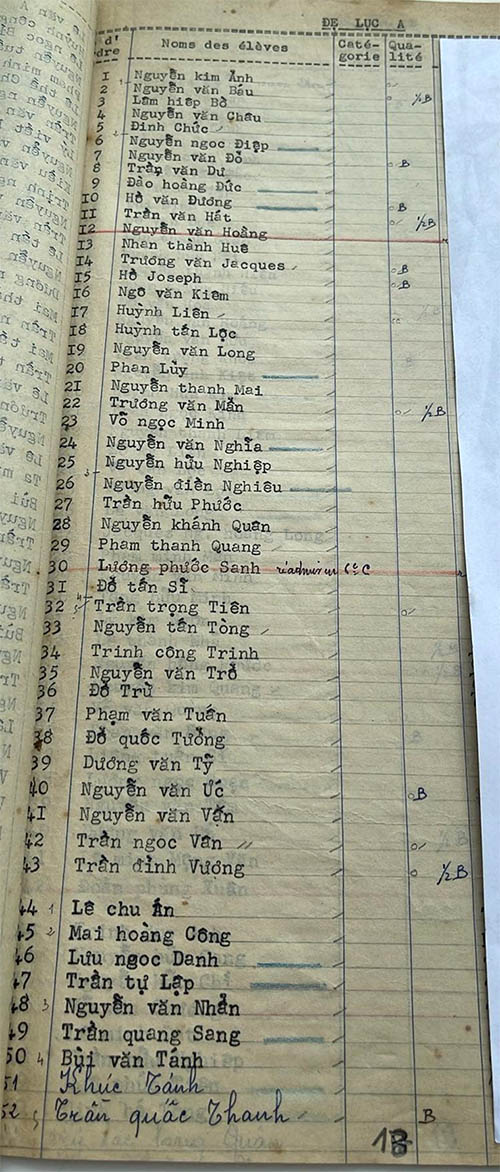 ĐỆ LỤC A
d'
rdre Noms des élèves Caté-gorie Qua-lité
1 Nguyễn kim Ảnh
2 Nguyễn văn Báu
3 Lâm hiêp Bô ½B
4 Nguyễn văn Châu
5 Đinh Chức
6 Nguyễn ngoc Điệp
7 Nguyễn văn Đỗ B
8 Trần văn Dư
9 Đào hoàng Đức
10 Hồ văn Đương B
11 Trần văn Hát ½B
12 Nguyễn văn Hoàng
13 Nhan thành Huê
14 Trương văn Jacques B
15 Hồ Joseph B
16 Ngô văn Kiêm
17 Huỳnh Liên
18 Huỳnh tấn Lộc
19 Nguyễn văn Long
20 Phan Lũy
21 Nguyễn thanh Mai
22 Trương văn Mẫn ½B
23 Võ ngọc Minh
24 Nguyễn văn Nghĩa
25 Nguyễn hữu Nghiệp
26 Nguyễn điền Nghiêu
27 Trần hữu Phước
28 Nguyễn khánh Quân
29 Pham thanh Quang
30 Lương phước Sanh réadmis en 6è C
31 Đỗ tấn Sĩ
32 Trần trọng Tiên
33 Nguyễn tấn Tòng
34 Trinh công Trinh
35 Nguyễn văn Trổ
36 Đỗ Trừ
37 Phạm văn Tuấn
38 Đỗ quốc Tưởng
39 Dương văn Tỹ
40 Nguyễn văn Ức B
41 Nguyễn văn Vặn
42 Trần ngoc Vân
43 Trần đình Vượng ½B
44 1 Lê chu Ấn
45 2 Mai hoàng Công
46 Lưu ngoc Danh
47 Trần tự Lập
48 3 Nguyễn văn Nhẫn
49 Trần quang Sang
50 4 Bùi văn Tánh
51 Khúc Tánh
52 5 Trần quắc Thanh B